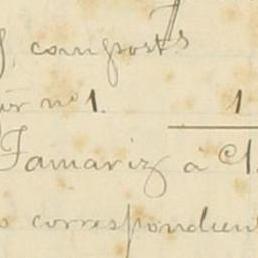 composts
nº 1. 1
Tamariz a
correspondient